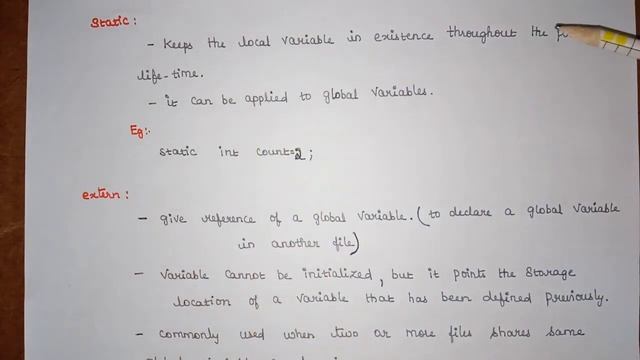 Static:
- Keeps the local variable in existence throughout the
life-time.
- it can be applied to global variables.
Eg:-
static int count=2;
extern:
- give reference of a global variable. (to declare a global variable
in another file)
- variable cannot be initialized, but it points the storage
location of a variable that has been defined previously.
- commonly used when two or more files shares same